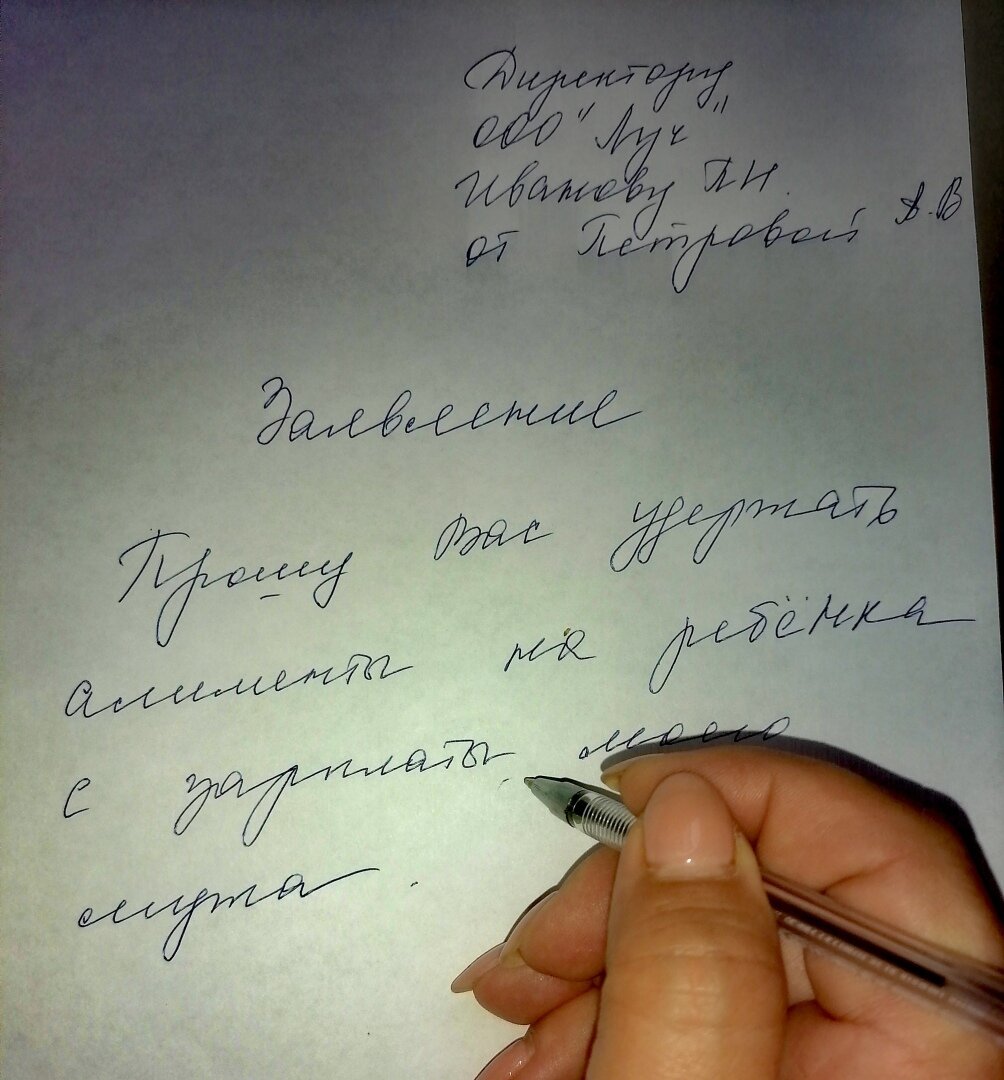 Директору
ООО "Луч"
Иванову П.Н.
от Петровой А.В
Заявление
Прошу Вас удержать
алименты на ребёнка
с зарплаты моего
мужа.